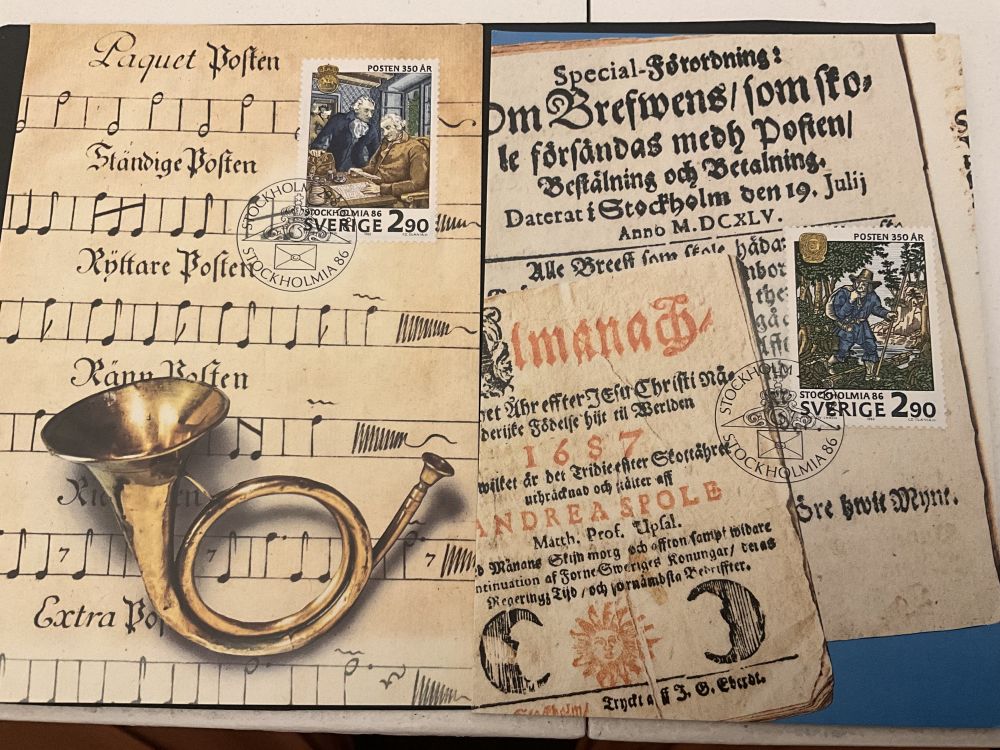 Paquet Posten
POSTEN 350 ÅR
Ständige Posten
STOCKHOLMIA 86
SVERIGE 2.90
STOCKHOLM
STOCKHOLMIA 86
Ryttare Posten
Ränn Posten
Extra
Special-Förordning:
Om Brefwens/ som sko-
le försändas medh Posten/
Bestälning och Betalning.
Daterat i Stockholm den 19. Julij
Anno M.DCXLV.
Alle Breef som skole
POSTEN 350 ÅR
STOCKHOLMIA 86
SVERIGE 2.90
STOCKHOLM
STOCKHOLMIA 86
Öre hwit Mynt.
lmanach-
Åhr effter JEsu Christi Nå-
derijke Födelse hijt til Werlden
1687
wilket är det Tridie effter Skottåhret
uthräknad och ställter aff
ANDREA SPOLE
Matth. Prof. Upsal.
Månans Skijn morg och affton sampt widare
Continuation af Forne Sweriges Konungar/ deras
Regerings Tijd/ och förnämbsta Bedriffter.
Tryckt aff J. G. Eberdt.